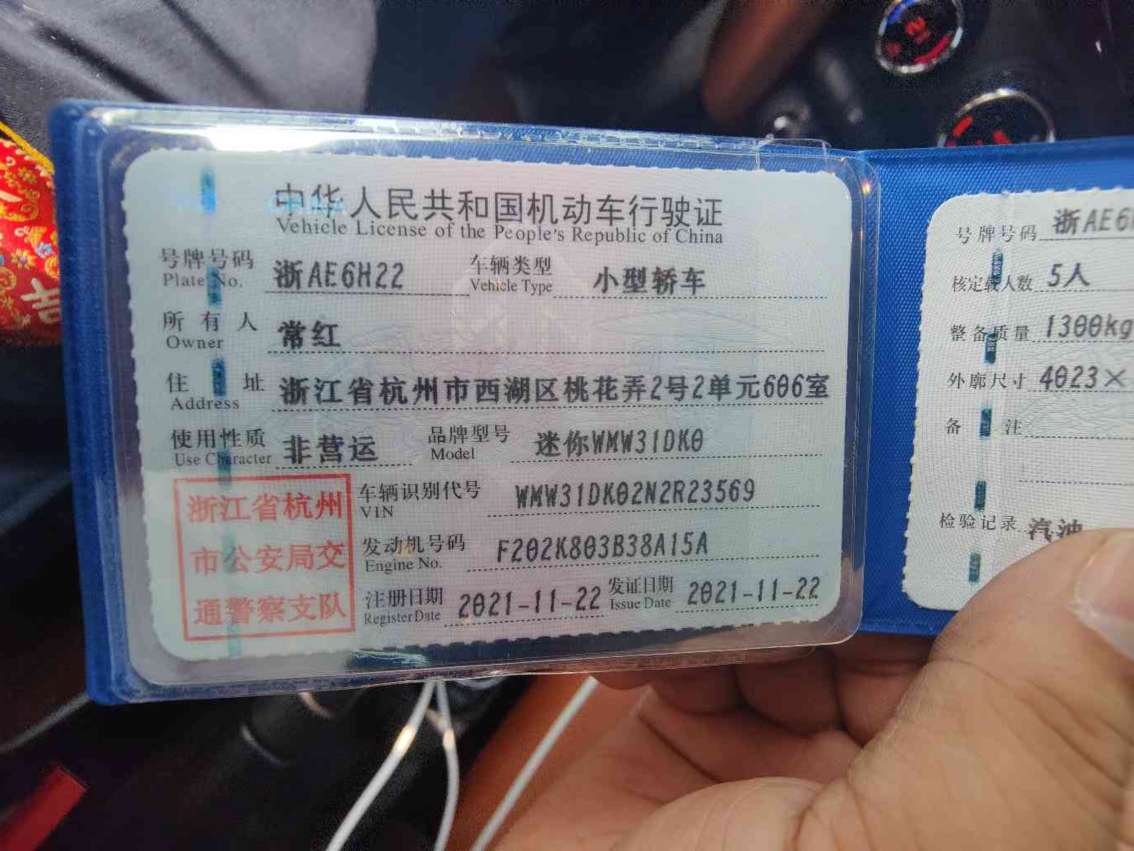 中华人民共和国机动车行驶证
Vehicle License of the People's Republic of China
号牌号码 浙AE6H22 车辆类型 小型轿车
Plate No. Vehicle Type
所有人 常红
Owner
住址 浙江省杭州市西湖区桃花弄2号2单元606室
Address
使用性质 非营运 品牌型号 迷你WMW31DK0
Use Character Model
浙江省杭州
市公安局交
通警察支队
车辆识别代号 WMW31DK02N2R23569
VIN
发动机号码 F202K803B38A15A
Engine No.
注册日期 2021-11-22 发证日期 2021-11-22
Register Date Issue Date
号牌号码 浙AE6
核定载人数 5人
整备质量 1300kg
外廓尺寸 4023×
备注
检验记录 汽油
吉